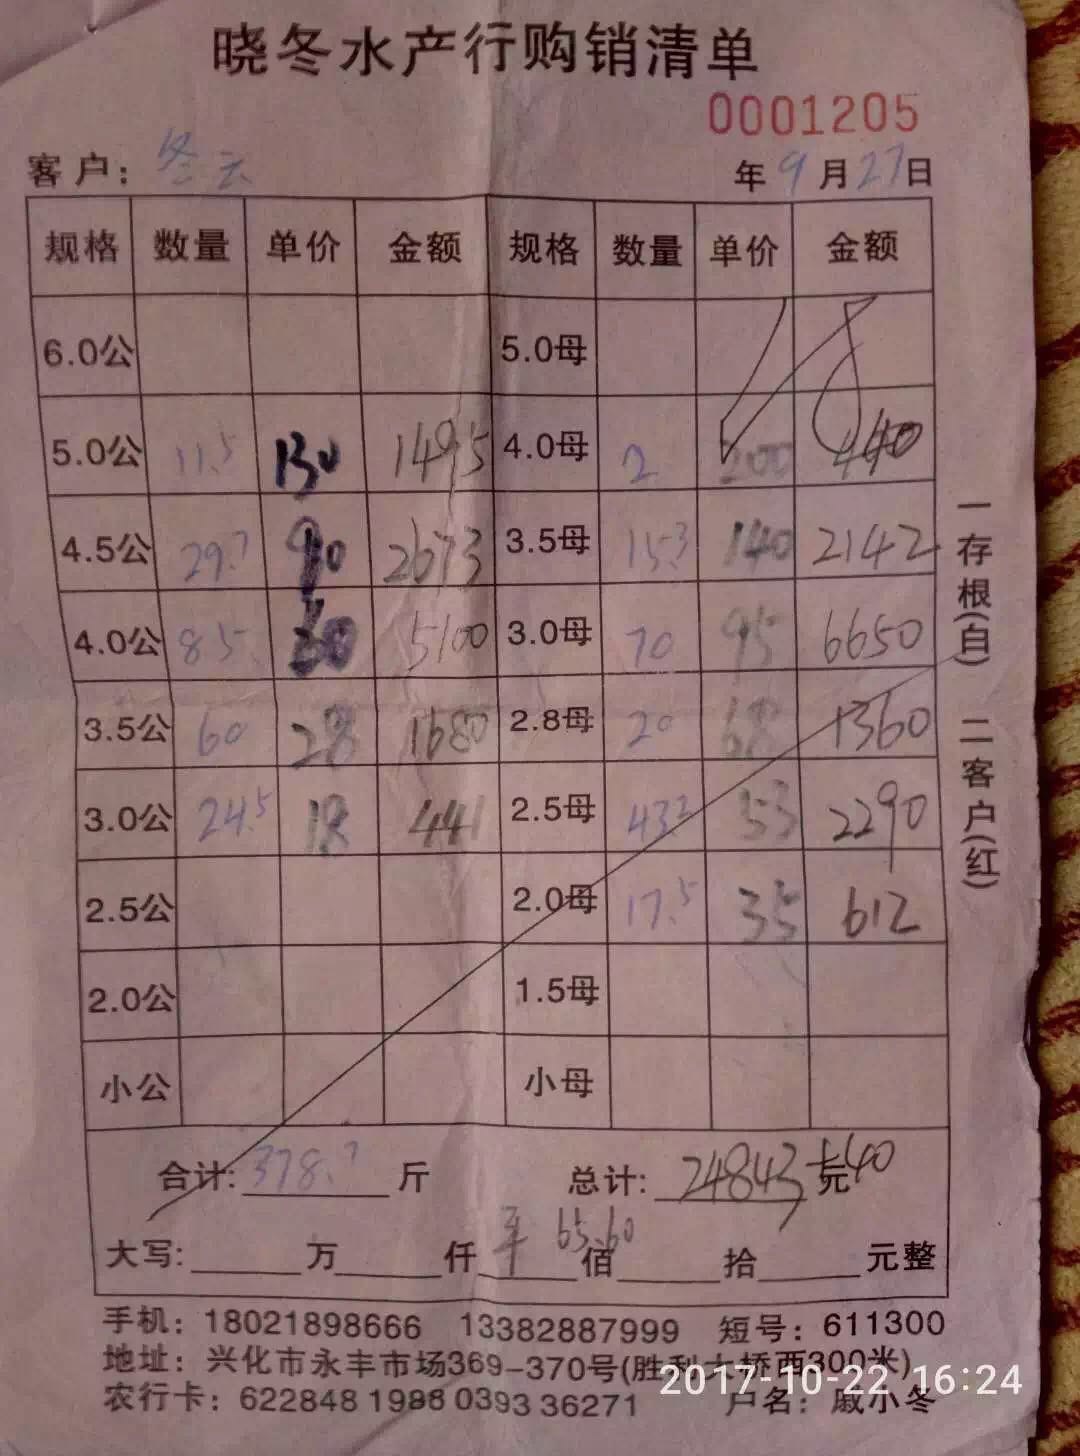 晓冬水产行购销清单
0001205
客户: 冬云 年 9 月 27 日
规格 数量 单价 金额 规格 数量 单价 金额
6.0公 5.0母
5.0公 11.5 130 1495 4.0母 2 200 440
4.5公 29.7 90 2673 3.5母 15.3 140 2142
4.0公 85 60 5100 3.0母 70 95 6650
3.5公 60 28 1680 2.8母 20 68 1360
3.0公 24.5 18 441 2.5母 43.2 53 2290
2.5公 2.0母 17.5 35 612
2.0公 1.5母
小公 小母
合计: 378.7 斤 总计: 24843 元 +40
平 65.60
大写: 万 仟 佰 拾 元整
一存根(白) 二客户(红)
手机: 18021898666 13382887999 短号: 611300
地址: 兴化市永丰市场369-370号(胜利大桥西300米)
农行卡: 622848 1988 0393 36271 户名: 戚小冬
2017-10-22 16:24